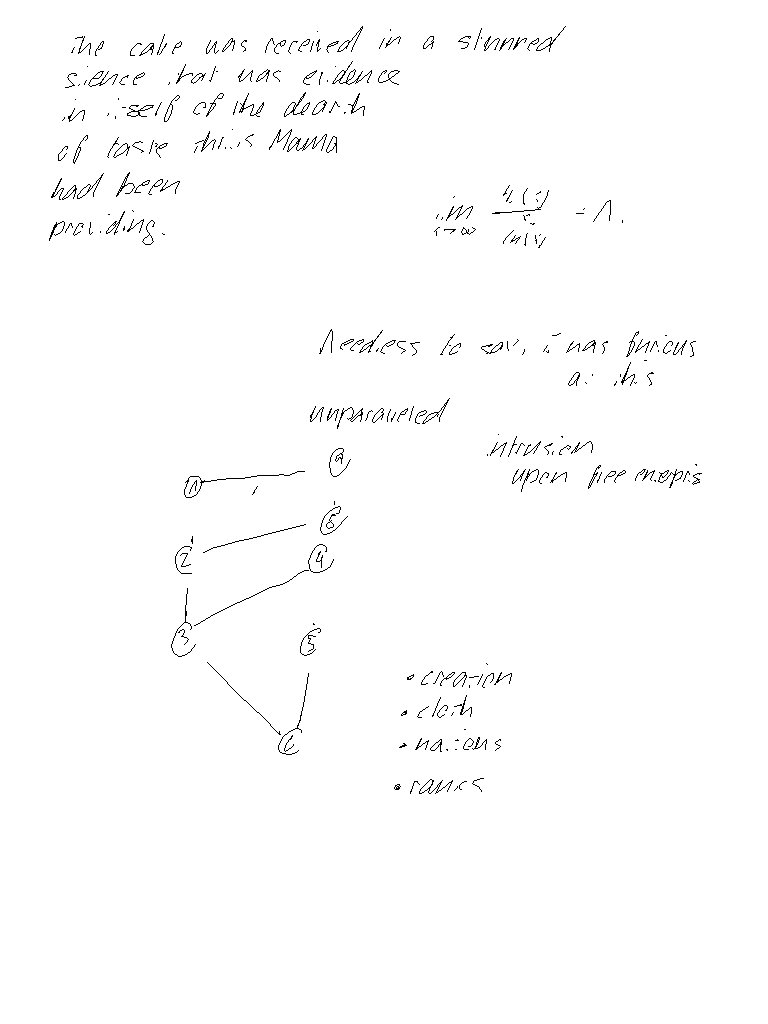 The cake was received in a stunned
sience that was evidence
in itself of the dearth
of taste this Mama
had been
providing.
lim
Needless to say, it was furious
at this
unparalleled
intrusion
upon free
1
2
3
4
5
• creation
• cloth
• nations
• ranks